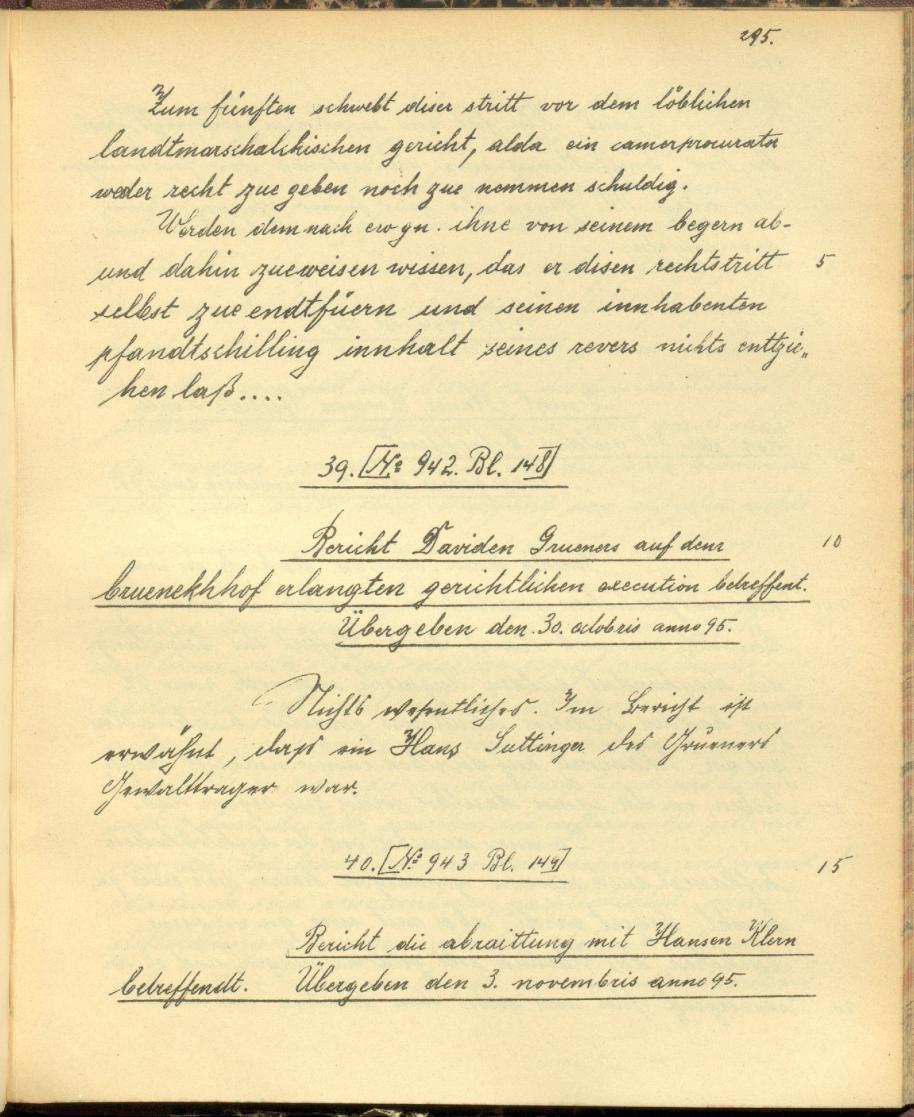 295.
Zum fünften schwebt diser stritt vor dem löblichen
landtmarschalchischen gericht, alda ein camerprocurator
weder recht zue geben noch zue nemmen schuldig.
Werden demnach ew gn. ihne von seinem begern ab-
und dahin zueweisen wissen, das er disen rechtstritt 5
selbst zue endtfüern und seinen innhabenten
pfandtschilling innhalt seines revers nichts enttzie„
hen laß....
39. [No 942. Bl. 148]
Bericht Daviden Grueners auf dem 10
Gruenekhhof erlangten gerichtlichen execution betreffent.
Übergeben den 30. octobris anno 95.
Nichts wesentliches. Im Bericht ist
erwähnt, dass ein Hans Suttinger des Grueners
Gewalttrager war.
40. [No 943 Bl. 149] 15
Bericht die abraittung mit Hansen Klern
betreffendt. Übergeben den 3. novembris anno 95.